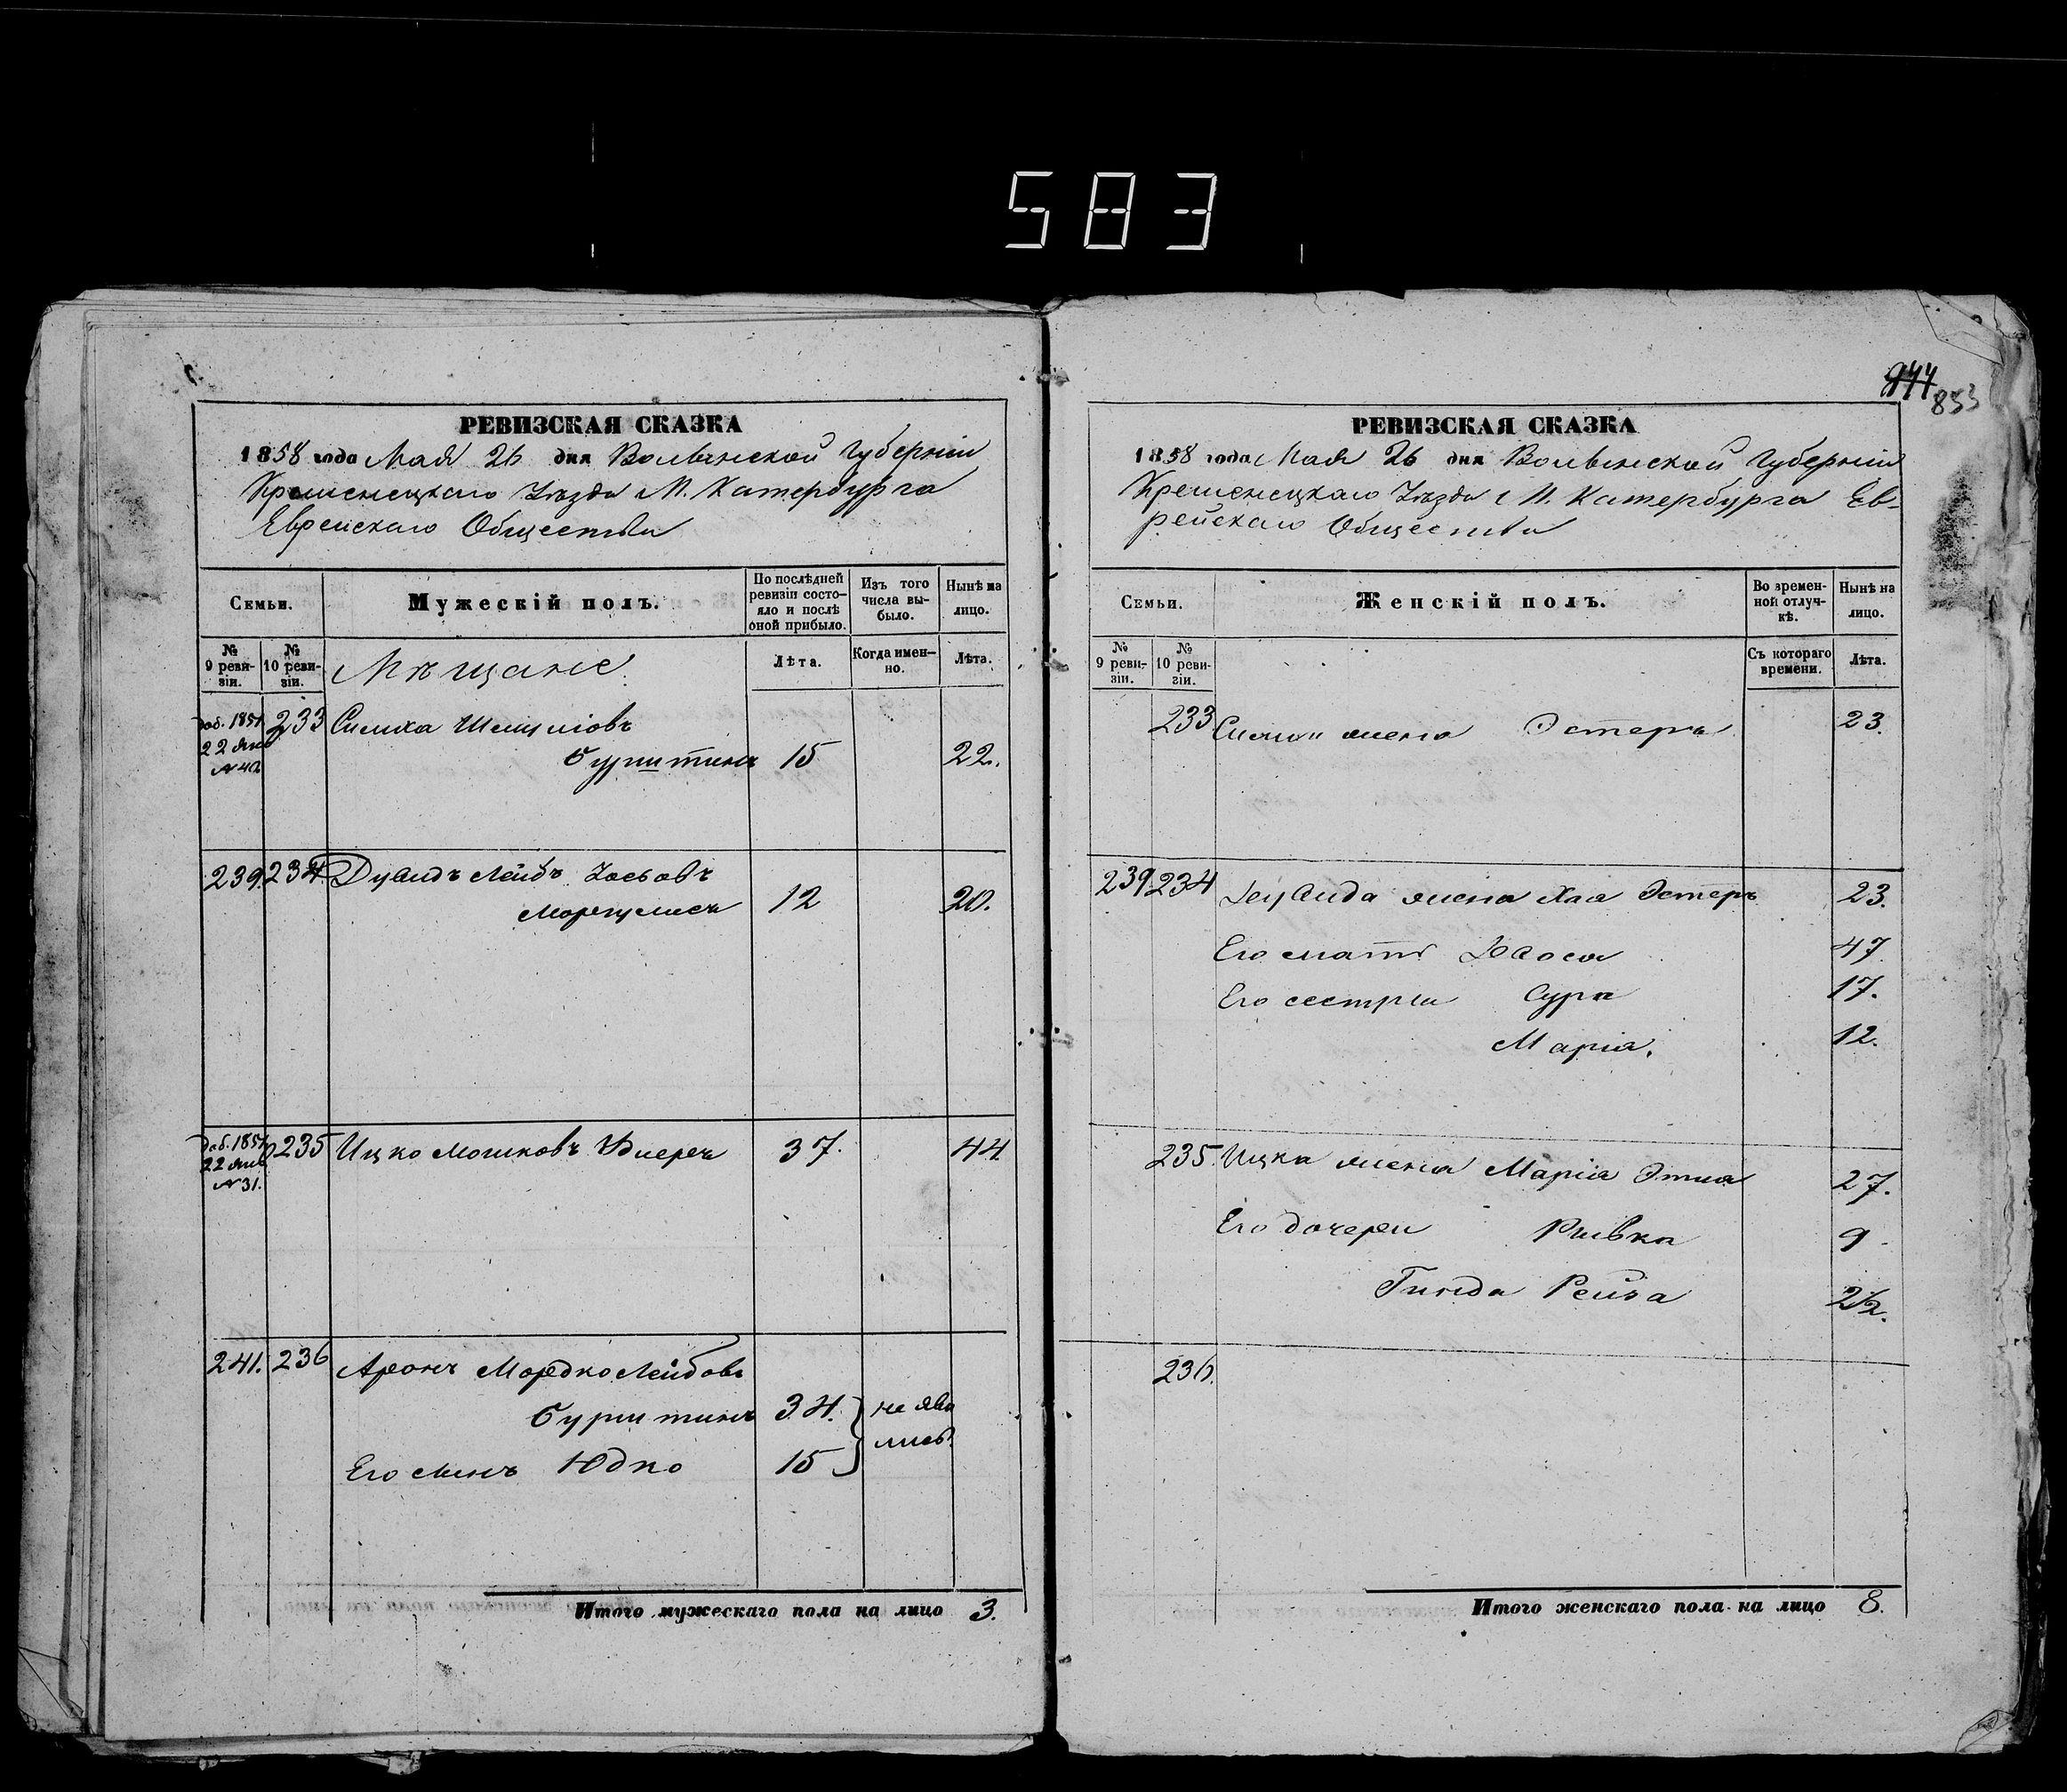 583
844
853
РЕВИЗСКАЯ СКАЗКА
1858 года Мая 26 дня Волынской Губерніи
Кременецкаго Уѣзда М. Катербурга
Еврейскаго Общества
Семьи.
Мужескій полъ.
По послѣдней ревизіи состояло и послѣ оной прибыло.
Изъ того числа выбыло.
Нынѣ на лицо.
№ 9 ревизіи.
№ 10 ревизіи.
Мѣщане
Лѣта.
Когда именно.
Лѣта.
доб. 1851 22 Янв № 40
233 Симха
Бурштинъ 15 22.
239. 234 Дувидъ Лейбъ Іосьовъ
Маргулисъ 12 20.
доб. 1851 22 Янв № 31.
235 Ицко Мошковъ 37. 44
241. 236 Аронъ Мордко Лейбовъ
Бурштинъ 34. не яви
Его сынъ Юдко 15 лись.
Итого мужескаго пола на лицо 3.
РЕВИЗСКАЯ СКАЗКА
1858 года Мая 26 дня Волынской Губерніи
Кременецкаго Уѣзда М. Катербурга Ев-
рейскаго Общества
Семьи.
Женскій полъ.
Во временной отлучкѣ.
Нынѣ на лицо.
№ 9 ревизіи.
№ 10 ревизіи.
Съ котораго времени.
Лѣта.
233 Симхи жена Эстеръ 23.
239 234 Дувида жена Хая Эстеръ 23.
Его мать 47.
Его сестры Сура 17.
Марія. 12.
235. Ицка жена Марія Этля 27.
Его дочери Рывка 9
Гинда Рейза
236.
Итого женскаго пола на лицо 8.